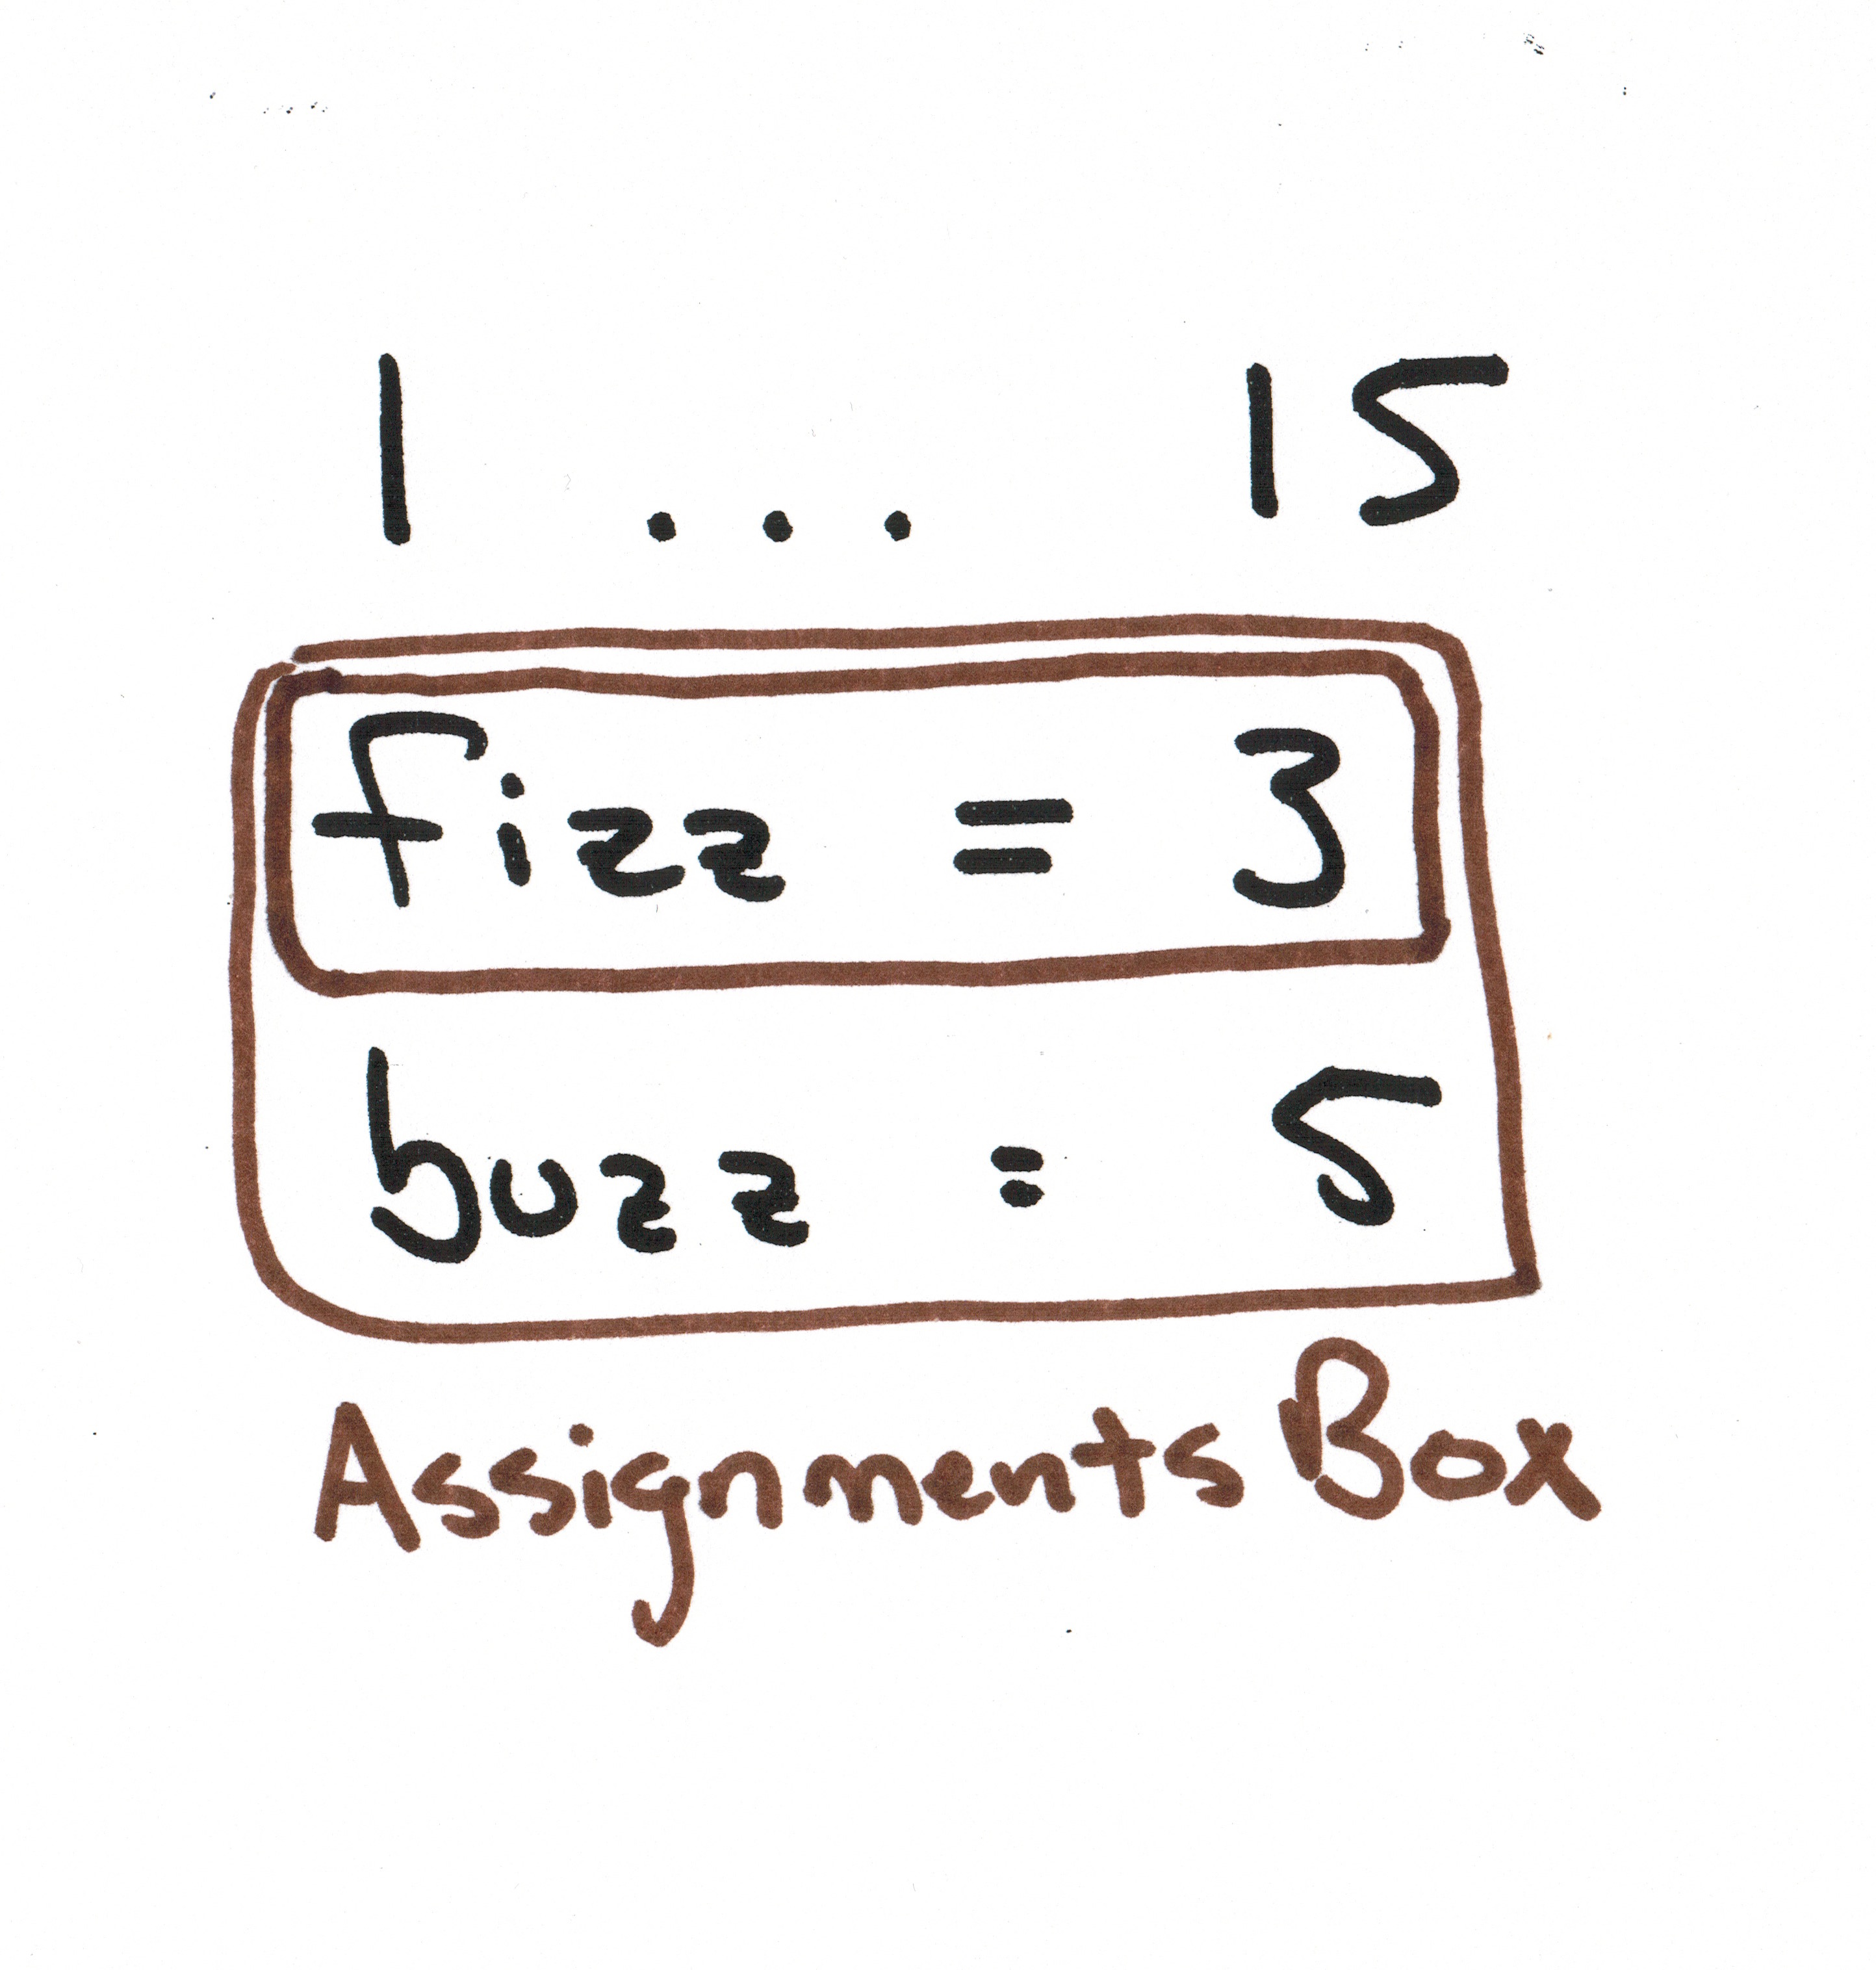 1 ... 15
fizz = 3
buzz = 5
Assignments Box